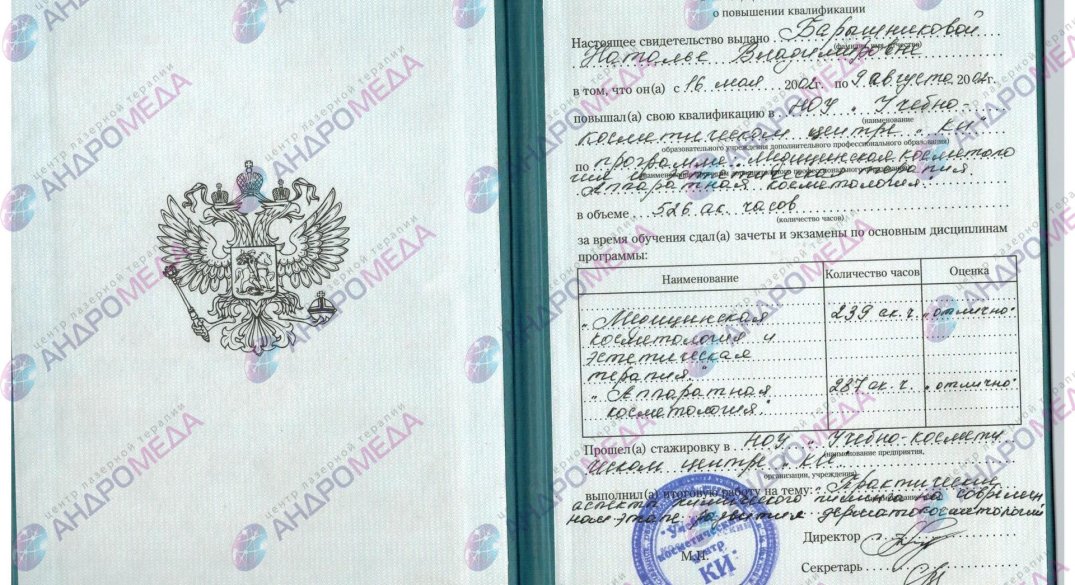 о повышении квалификации
Настоящее свидетельство выдано Барышниковой
Наталье Владимировне
в том, что он(а) с 16 мая 2002г. по 9 августа 2002г.
повышал(а) свою квалификацию в НОУ „Учебно-
(наименование
косметическом центре „КИ"
образовательного учреждения дополнительного профессионального образования)
по программе: „Медицинская косметоло
гия и эстетическая терапия.
Аппаратная косметология.
в объеме 526 ак. часов
(количество часов)
за время обучения сдал(а) зачеты и экзамены по основным дисциплинам
программы:
Наименование Количество часов Оценка
„Медицинская 239 ак. ч. „отлично"
косметология и
эстетическая
терапия."
„Аппаратная 287 ак. ч. „отлично"
косметология."
Прошел(а) стажировку в НОУ „Учебно-космети
(наименование предприятия,
ческом центре „КИ"
организации, учреждения)
выполнил(а) итоговую работу на тему: Практические
аспекты химического пилинга на современ
ном этапе развития дерматокосметологии
Директор
М.П.
Секретарь
Учебно-
косметический
центр
КИ
центр лазерной терапии
АНДРОМЕДА